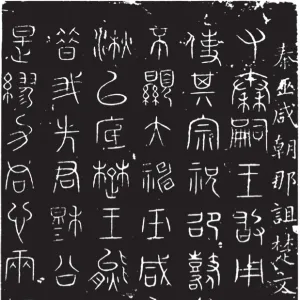 秦巫咸朝那詛楚文
又秦嗣王敢用
使其宗祝邵鼛
不顯大神巫咸
湫以底楚王熊
昔我先君穆公
是繆力同心兩